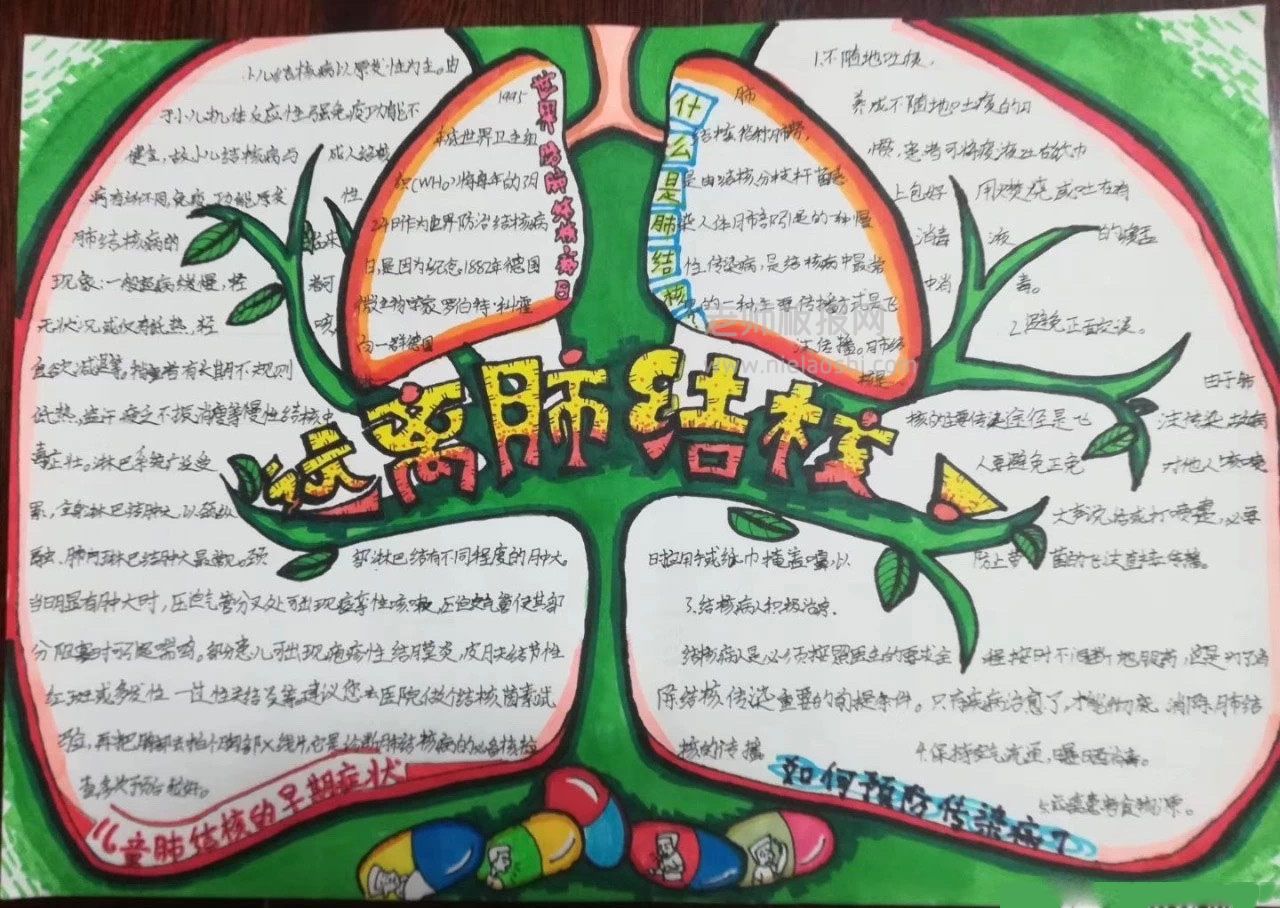 远离肺结核
小儿结核病以原发性为主。由
于小儿机体反应性强免疫功能不
健全，故小儿结核病与 成人结核
病有所不同，免疫功能原发 性
肺结核病的
现象：一般起病缓慢，轻 者可
无状况或仅有低热，轻 咳，
食欲减退等，有长期不规则
低热，盗汗 疲乏不振 消瘦等慢性结核中
毒症壮。淋巴系统广泛受
累，全身淋巴结肿大，以
肺门淋巴结肿大最 颈 部淋巴结有不同程度的肿大。
当明显有肿大时，压迫气管分叉处可出现痉挛性咳嗽，压迫支气管使其部
分阻塞时可引起喘鸣。部分患儿可出现疱疹性结膜炎，皮肤结节性
红斑或多发性一过性关结炎等。建议您去医院做个结核菌素试
验，再把胸部去拍个胸部X线片，它是诊断肺结核病的必备
儿童肺结核的早期症状
世界防肺结核病日
1995
年底世界卫生组
织(WHO)将每年的3月
24日作为世界防治结核病
日，是因为纪念1882年德国
微生物学家罗伯特·科霍
向一群德国
什么是肺结核
肺
结核俗称肺痨，
是由结核分枝杆菌感
染人体肺部引起的一种慢
性传染病，是结核病中最常
见的一种主要传播方式是飞
沫传播。肺结
核是
老师板报网
www.nielaoshi.com
1.不随地吐痰。
养成不随地吐痰的习
惯，患者可将痰液吐在纸巾
上包好 用火焚烧或吐在有
消毒 液 的痰盂
中消 毒。
2.避免正面交谈。
由于肺
核的主要传染途径是飞 沫传染 故病
人要避免正完 对他人咳嗽
大声说话或打喷嚏，必要
时应用手或纸巾掩盖嘴，以 防止带 菌的飞沫直接传播
3.结核病人积极治疗.
结核病人是必须按照医生的要求全 程按时不间断地服药，这是为了消
除结核传染重要的前提条件。只有疾病治愈了，才能彻底 消除肺结
核的传播 4.保持空气充足，曝晒消毒。
如何预防传染病？